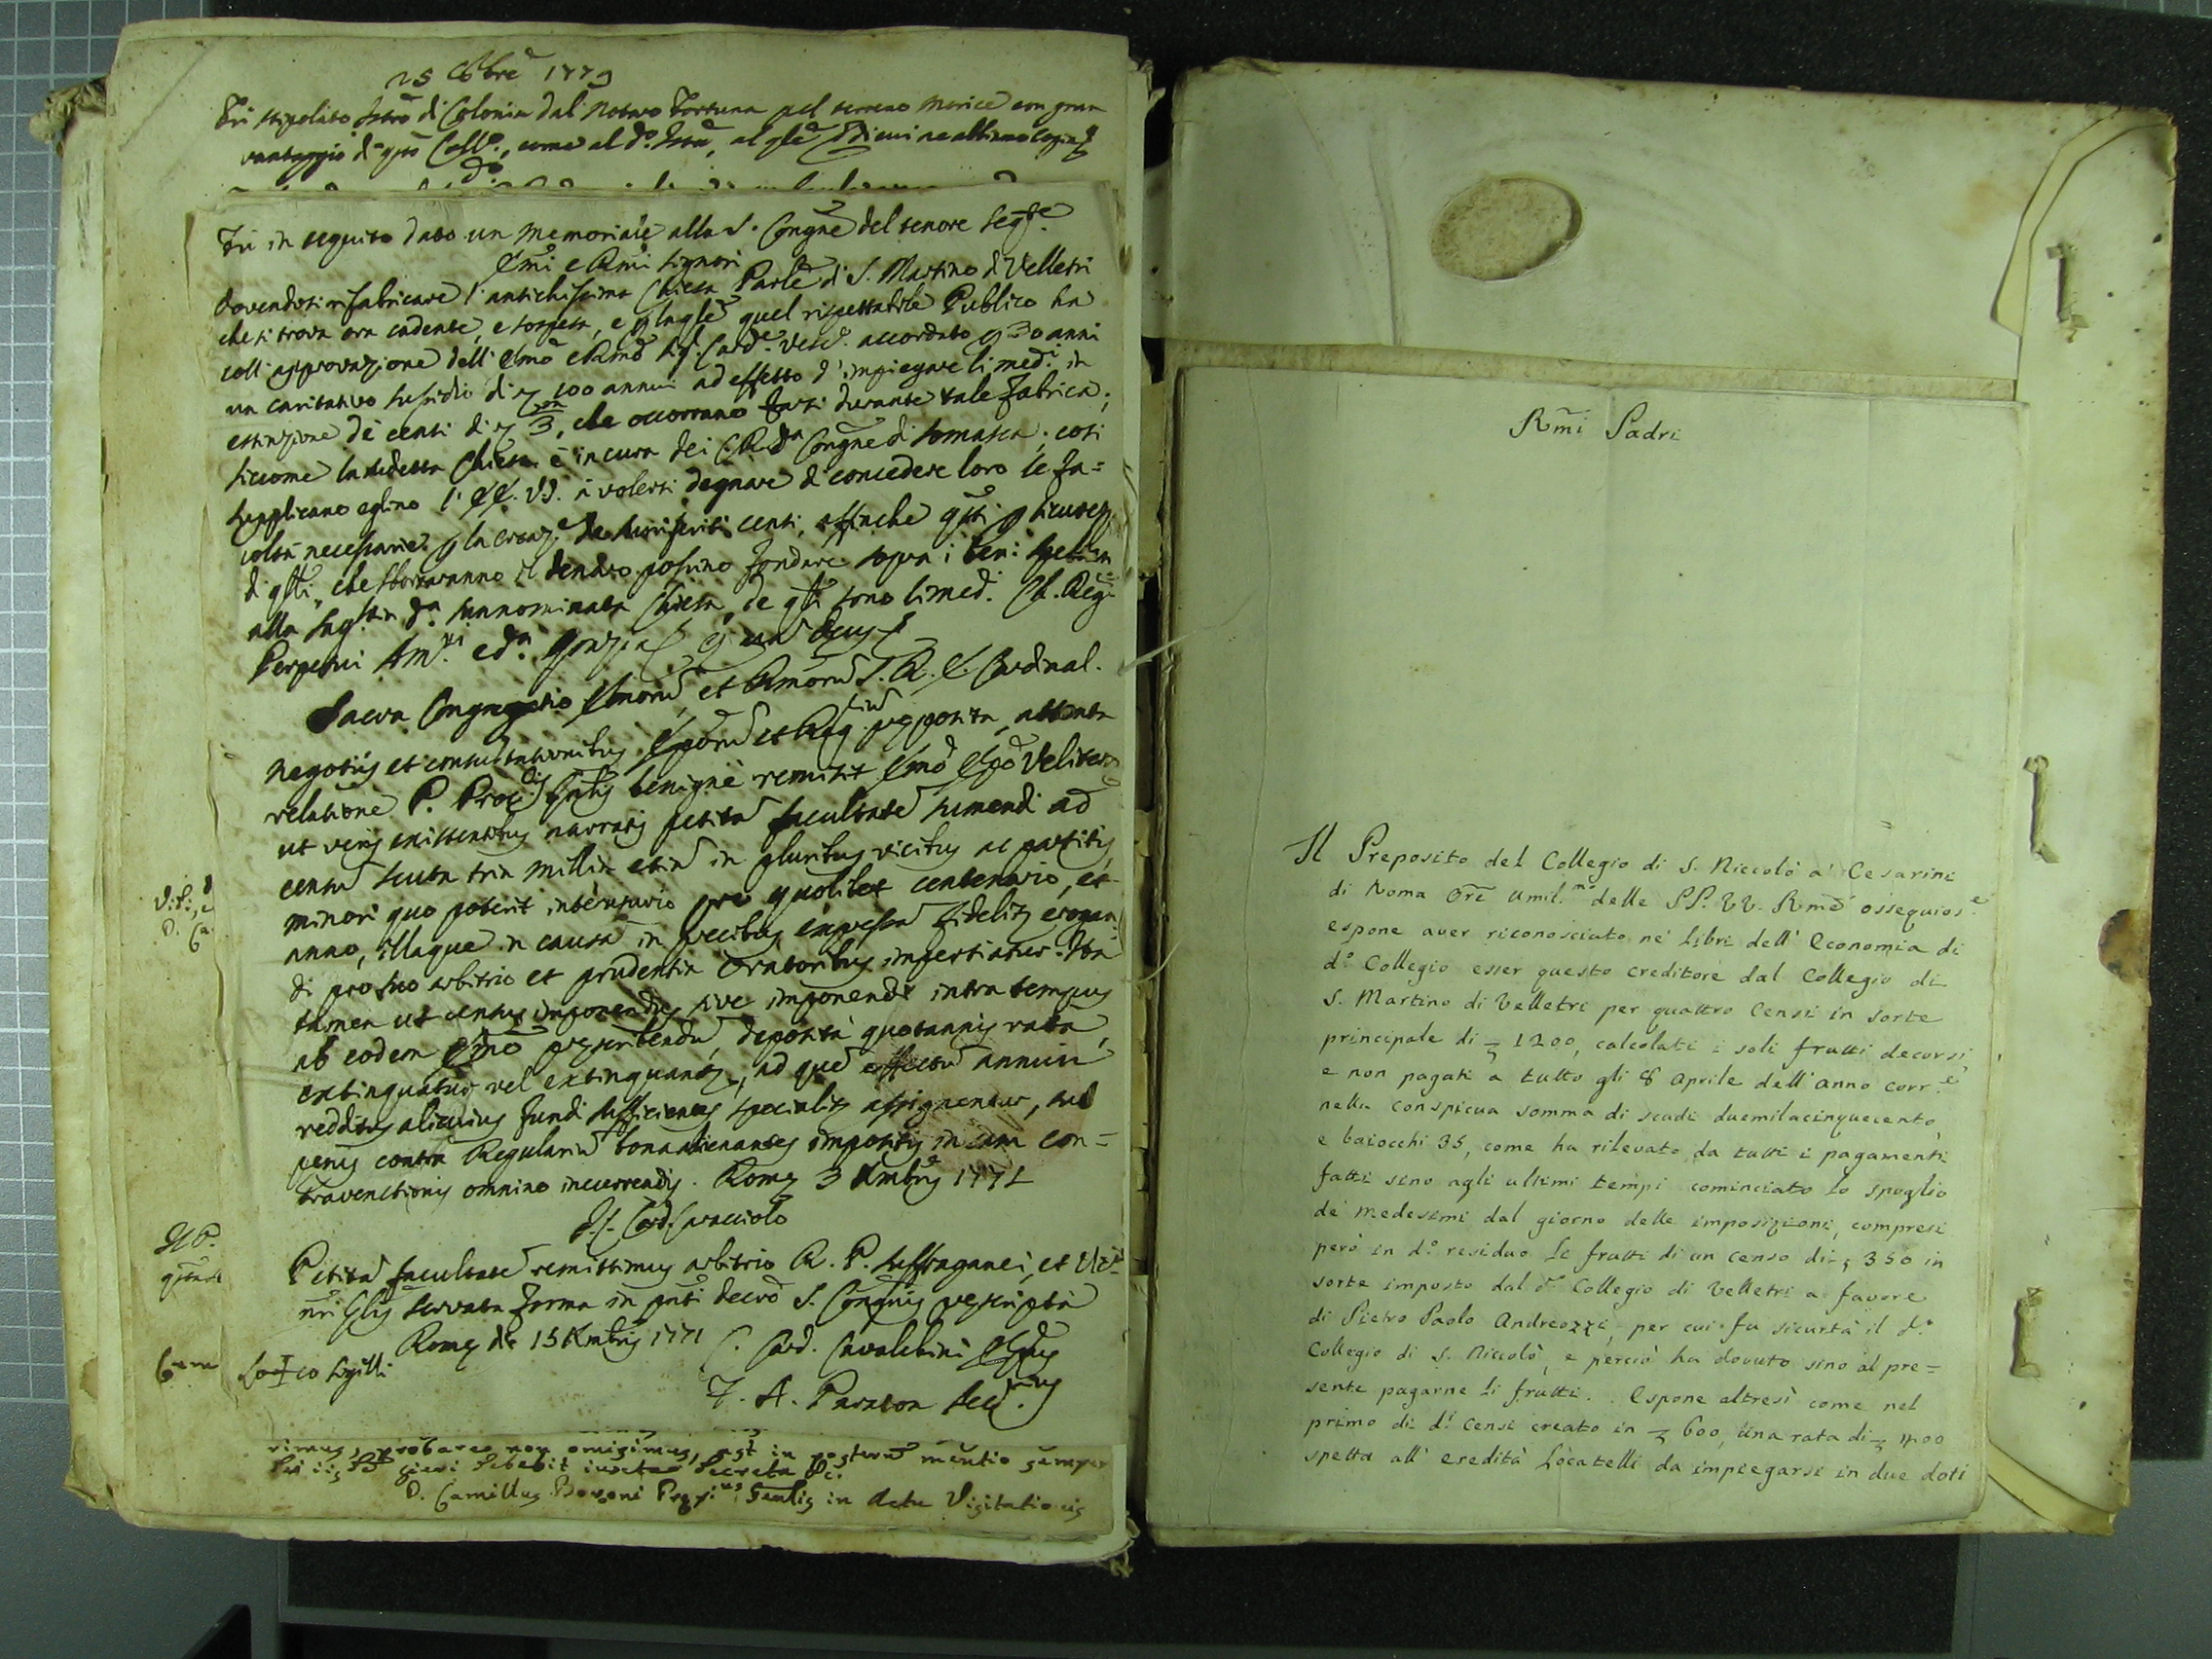 25 8bre 1779
Fù stipolato Istro di Colonia dal Notaro Fortuna pel terreno Morice con gran
vantaggio di qsto Coll°., come al d°. Istro, al qle di cui ne abbiamo copia
Fù in seguito dato un Memoriale alla S. Congne del tenore segte.
Emi e Rmi Signori
Dovendosi rifabricare l'antichissima Chiesa Parle di S. Martino di Velletri
che si trova ora cadente, e sospesa, e p la qle quel rispettabile Publico ha
coll'approvazione dell'Emo e Rmo Sig. Card. Vescº. accordato p 30 anni
un caritativo susidio di 100 annui ad effetto d'impiegare li medi. in
estinzione de' censi di 3, che occorrano farsi durante tale fabrica;
siccome la sudetta Chiesa è in cura dei C. R. da Congne di Somasca; così
supplicano eglino l'EE. VV. à volersi degnare di concedere loro le fa=
coltà necessarie p la creaz.e de censi, affinche qsti p sicurez.
di qlli, che sborseranno il denaro possino fondare sopra i beni
alla sunnominata Chiesa, de qli sono li med. Ch. Reg.
Perpetui Amri. e
Sacra Congregatio Emorum, et Rmorum S. R. E. Cardinal.
negotiis et consultationibus Eporum et Reg. preposita, attenta
relatione P. Procris Gnlis benigne remisit Emo Epo Veliterno
ut veris existentibus narratis petitam facultatem sumendi ad
censum scuta tria millia etiam in pluribus vicibus ac partitis
minori quo poterit interusurio pro quolibet centenario, et
anno, illaque in causa in precibus expressa fideliter erogan=
di pro suo arbitrio et prudentia Oratoribus impertiatur. Ita
tamen ut census imponendus sive imponendi intra tempus
ab eodem Emo prescribendum, deposita quotannis rata,
extinguatur vel extinguantur, ad quem effectum annui
redditus alicuius fundi sufficientes specialiter assignentur, sub
penis contra Regularium bona alienantes impositis in casu con=
traventionis omnino incurrendis. Romę 3 Xmbris 1771
Card. Caracciolo
Petitam facultatem remittimus arbitrio R. P. Suffraganei, et Vic.
nri Glis servata forma in pnti decreto S. Congnis prescripta
Romę die 15 Xmbris 1771 C. Card. Cavalchini
Loco Sigilli
F. A. Secrius.
rimus, probarea non omisimus, ast in posterum mentio semper
fieri debebit iuxta Decreta &c.
D. Camillus Bovoni Prępius Gnalis in Actu Visitationis
Rmi Padri
Il Preposito del Collegio di S. Niccolò a' Cesarini
di Roma Ore umil.mo delle PP. VV. Rme ossequios.e
espone aver riconosciuto ne' libri dell'Economia di
d.o Collegio esser questo creditore dal Collegio di
S. Martino di Velletri per quattro Censi in sorte
principale di 1200, calcolati i soli frutti decorsi,
e non pagati a tutto gli 8 Aprile dell'anno corr.e
nella conspicua somma di scudi duemilacinquecento,
e baiocchi 35, come ha rilevato da tutti i pagamenti
fatti sino agli ultimi tempi cominciato lo spoglio
de medesimi dal giorno delle imposizioni, compresi
però in d.o residuo li frutti di un censo di 350 in
sorte imposto dal d.o Collegio di Velletri a favore
di Pietro Paolo Andreozzi, per cui fu sicurtà il d.o
Collegio di S. Niccolò, e perciò ha dovuto sino al pre=
sente pagarne li frutti. Espone altresì come nel
primo di d.i Censi creato in 600, una rata di 400
spetta all'eredità Locatelli da impiegarsi in due doti